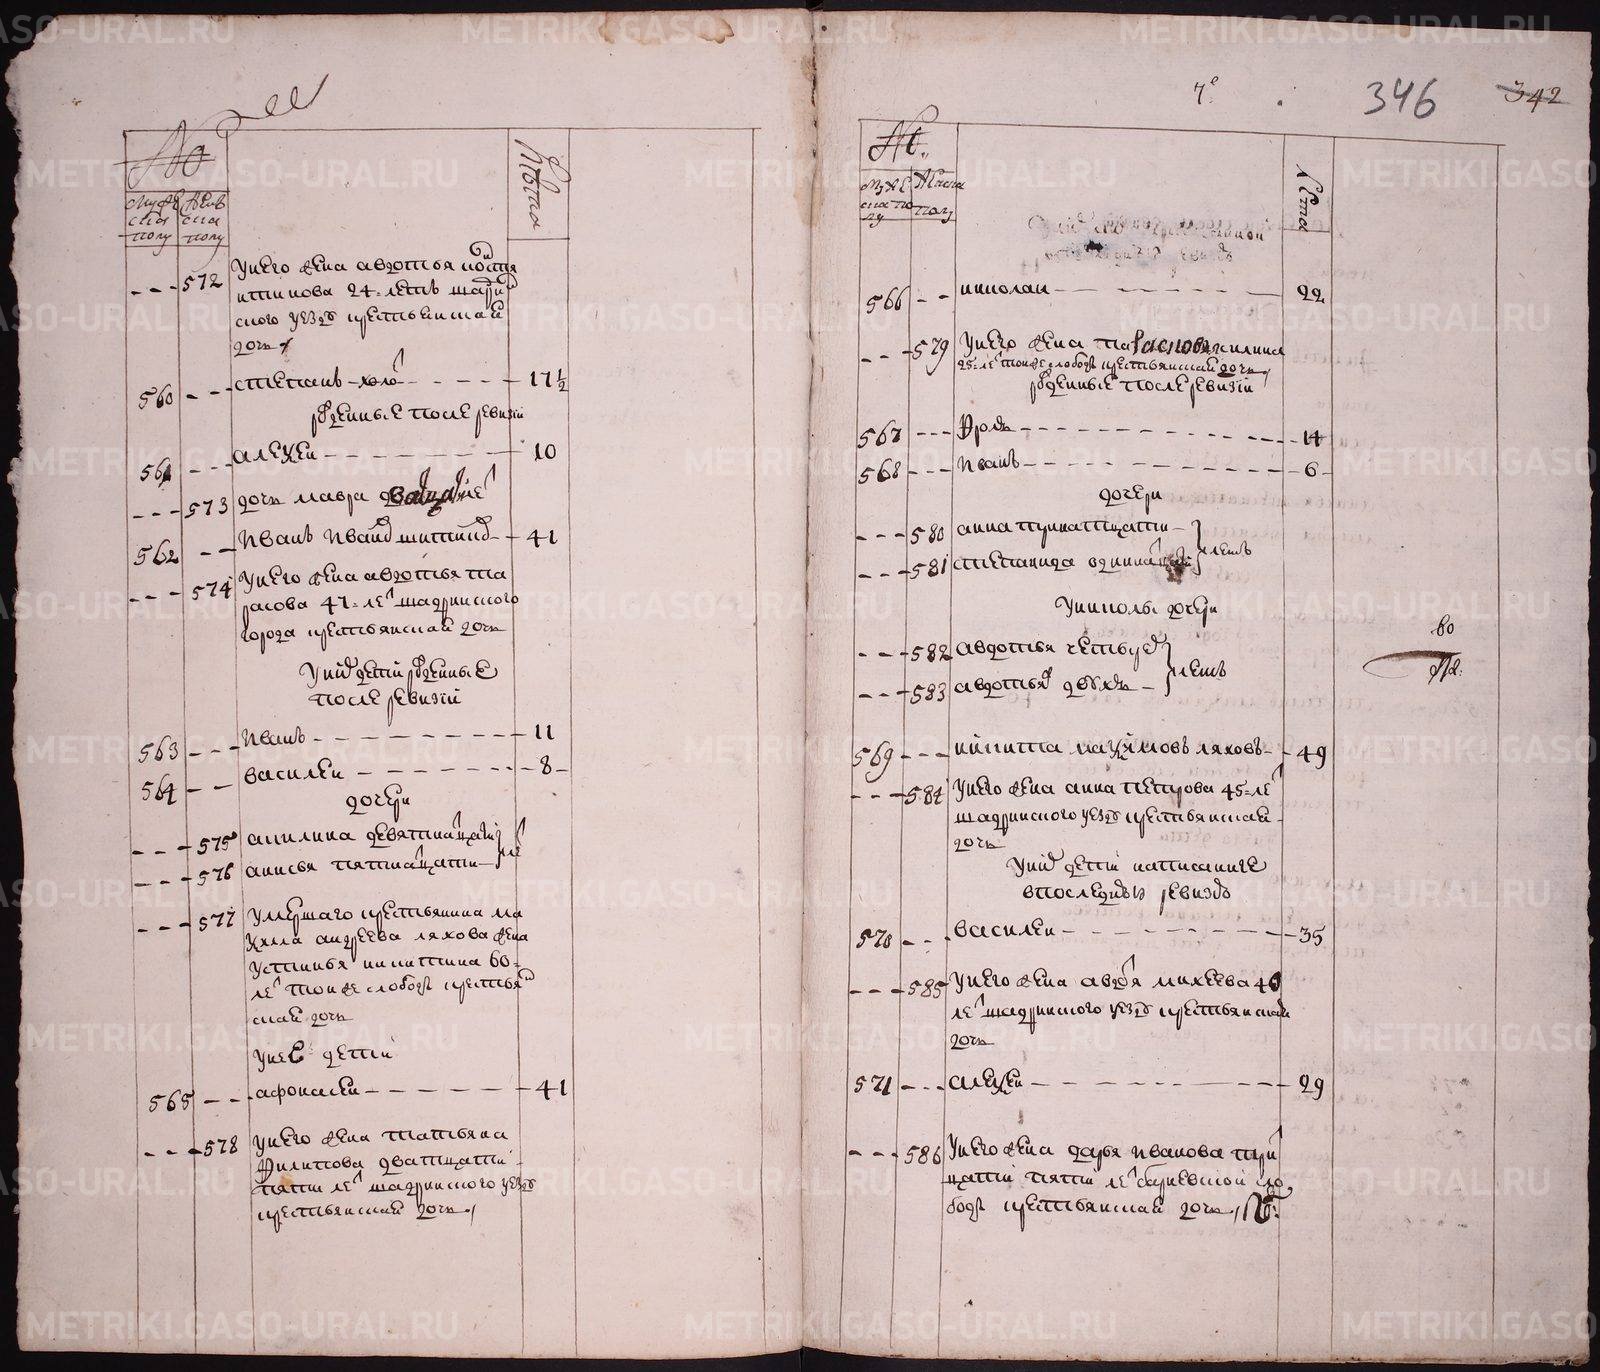 №
мужеска полу
женска полу
лѣта
572 у него жена авдотья
24 летъ шадрин
ского уезда крестьянская
дочь
560 степанъ 17 1/2
рожденные после ревизiи
561 алексеи 10
573 дочь мавра
562 иванъ 41
574 у него жена авдотья та
расова 47 ле шадринского
города крестьянская дочь
у них детей рожденные
после ревизiи
563 иванъ 11
564 василеи 8
дочери
575 акилина девятнатцати
576 анисья пятнатцати ле
577 умершаго крестьянина ма
ксима андреева ляхова жена
устинья никитина 60
ле тои же слободы крестья
нская дочь
у нее детей
565 афонасеи 41
578 у него жена татьяна
филипова дватцати
пяти ле шадринского уезда
крестьянская дочь
7е
346
342
№
мужеска полу
женска полу
лета
566 николаи 22
579 у него жена
25 ле тои же слободы крестьянская дочь
рожденные после ревизiи
567 фролъ 14
568 иванъ 6
дочери
580 анна тринатцати
581 степанида одиннатцати летъ
у николы дочери
582 авдотья четырех
583 авдотья двухъ летъ
569 никита максимовъ ляховъ 49
584 у него жена анна петрова 45 ле
шадринского уезда крестьянская
дочь
у них детей написанные
в последнеи ревизiи
570 василеи 35
585 у него жена авдотья михеева 40
ле шадринского уезда крестьянская
дочь
571 алексеи 29
586 у него жена дарья иванова три
тцати пяти ле барневской сло
боды крестьянская дочь
METRIKI.GASO-URAL.RU